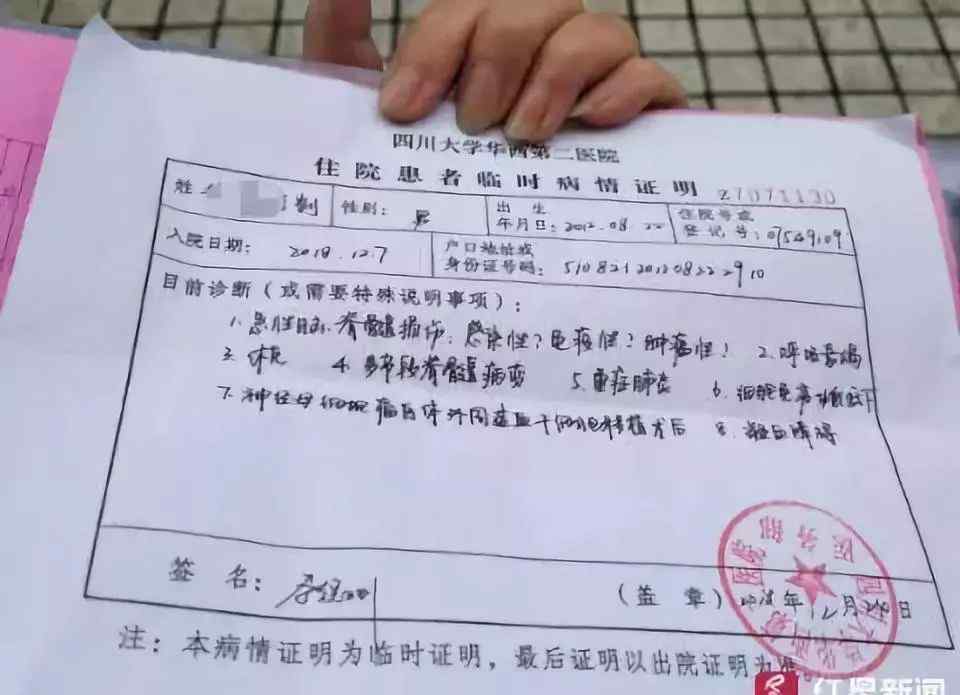 四川大学华西第二医院
住院患者临时病情证明 Z7071130
姓 制 性别: 男 出生年月日: 2012.08.22 住院号或登记号: 07549109
入院日期: 2018.12.7 户口地址或身份证号码: 510821201208222910
目前诊断(或需要特殊说明事项):
1. 急性脑、脊髓损伤: 感染性? 免疫性? 肿瘤性? 2. 呼吸衰竭
3. 休克 4. 多节段脊髓病变 5. 重症肺炎 6. 细胞免疫功能低下
7. 神经母细胞瘤自体外周造血干细胞移植术后 8. 凝血障碍
签 名:
(盖 章) 2018年12月24日
注:本病情证明为临时证明,最后证明以出院证明为
医务部
红星新闻